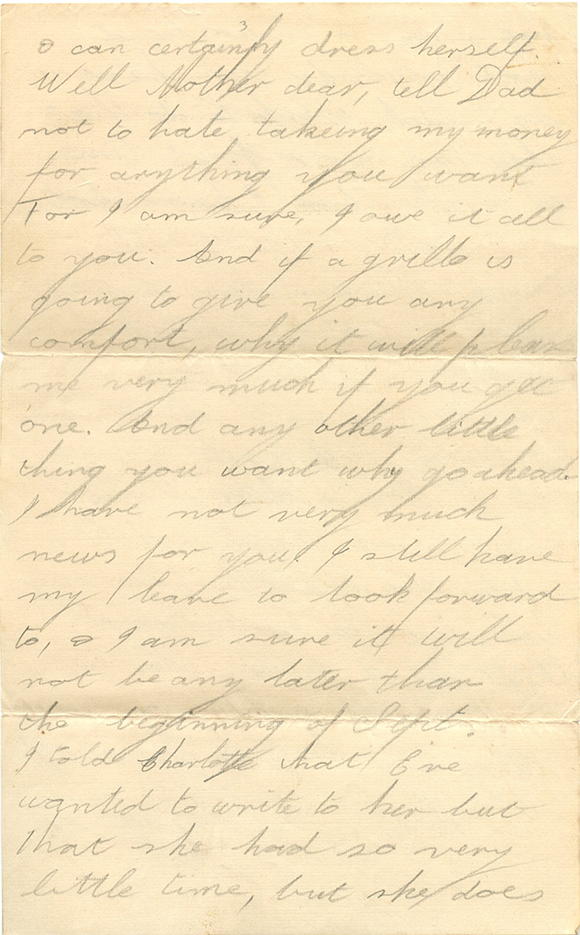 3
& can certainly dress herself.
Well Mother dear, tell Dad
not to hate takeing my money
for anything you want
For I am sure, I owe it all
to you. And if a grillo is
going to give you any
comfort, why it will please
me very much if you get
one. And any other little
thing you want why go ahead.
I have not very much
news for you. I still have
my leave to look forward
to, & I am sure it will
not be any later than
the beginning of Sept.
I told Charlotte that Eve
wanted to write to her but
that she had so very
little time, but she does